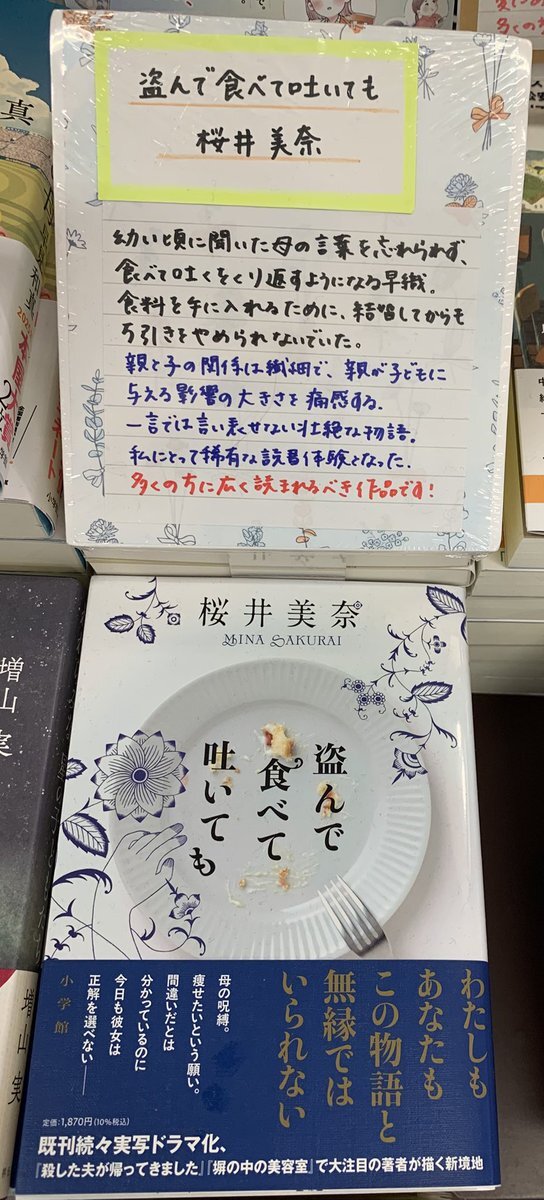 盗んで食べて吐いても
桜井美奈
幼い頃に聞いた母の言葉を忘れられず、
食べて吐くをくり返すようになる早織。
食料を手に入れるために、結婚してからも
万引きをやめられないでいた。
親と子の関係は繊細で、親が子どもに
与える影響の大きさを痛感する。
一言では言い表せない壮絶な物語。
私にとって稀有な読書体験となった。
多くの方に広く読まれるべき作品です!
桜井美奈
MINA SAKURAI
盗んで
食べて
吐いても
わたしも
あなたも
この物語と
無縁では
いられない
母の呪縛。
痩せたいという願い。
間違いだとは
分かっているのに
今日も彼女は
正解を選べない——
小学館
定価:1,870円(10%税込)
既刊続々実写ドラマ化、
『殺した夫が帰ってきました』『塀の中の美容室』で大注目の著者が描く新境地
増山 実
増山 実